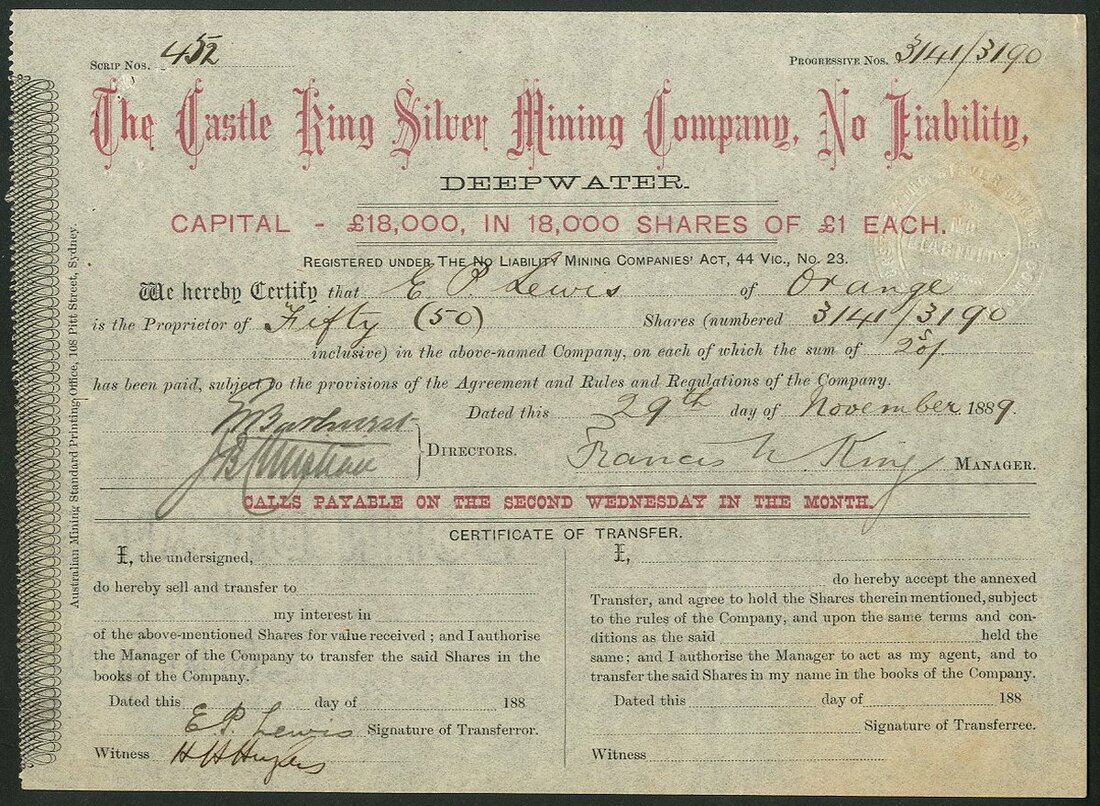 SCRIP NOS. 452 PROGRESSIVE NOS. 3141/3190
The Castle King Silver Mining Company, No Liability,
DEEPWATER.
CAPITAL - £18,000, IN 18,000 SHARES OF £1 EACH.
REGISTERED UNDER THE NO LIABILITY MINING COMPANIES' ACT, 44 VIC., NO. 23.
We hereby Certify that E P. Lewis of Orange
is the Proprietor of Fifty (50) Shares (numbered 3141/3190
inclusive) in the above-named Company, on each of which the sum of
has been paid, subject to the provisions of the Agreement and Rules and Regulations of the Company.
Dated this 29th day of November 1889.
DIRECTORS. Francis W King MANAGER.
CALLS PAYABLE ON THE SECOND WEDNESDAY IN THE MONTH.
CERTIFICATE OF TRANSFER.
I, the undersigned,
do hereby sell and transfer to
my interest in
of the above-mentioned Shares for value received; and I authorise
the Manager of the Company to transfer the said Shares in the
books of the Company.
Dated this day of 188
E.P. Lewis Signature of Transferror.
Witness
I,
do hereby accept the annexed
Transfer, and agree to hold the Shares therein mentioned, subject
to the rules of the Company, and upon the same terms and con-
ditions as the said held the
same; and I authorise the Manager to act as my agent, and to
transfer the said Shares in my name in the books of the Company.
Dated this day of 188
Signature of Transferree.
Witness
Australian Mining Standard Printing Office, 108 Pitt Street, Sydney.